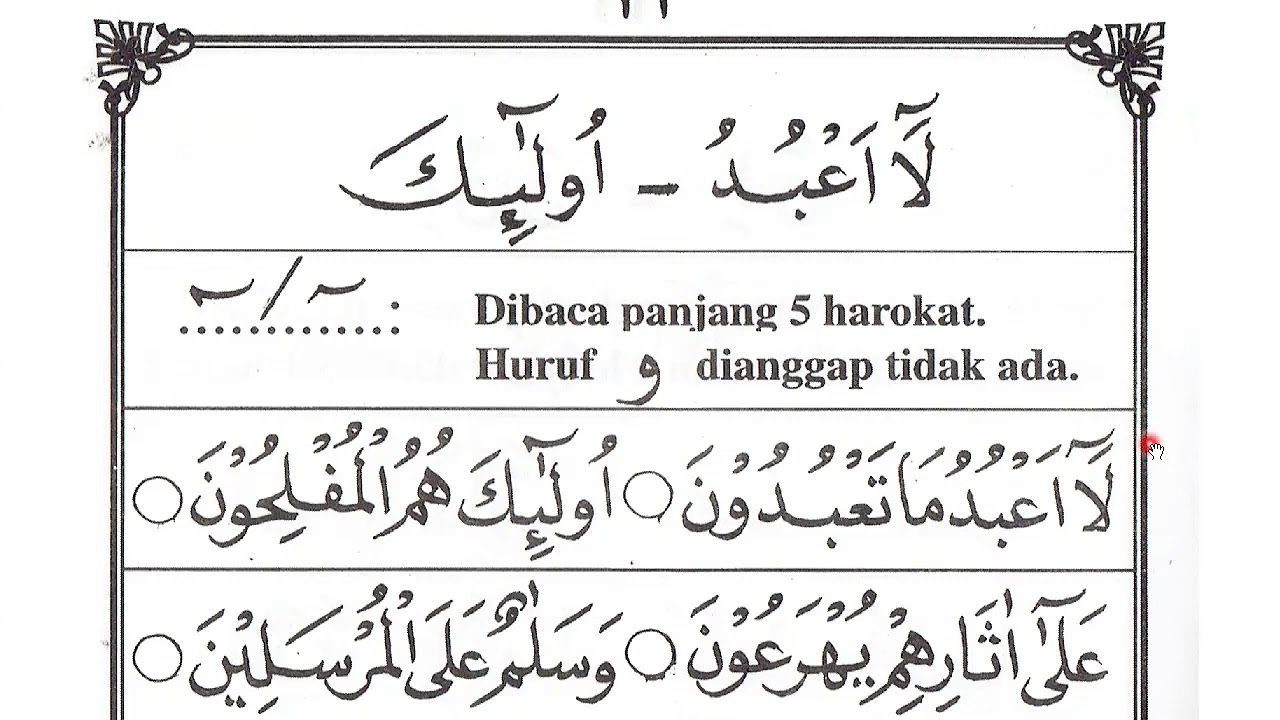 لَآ اَعْبُدُ – اُولٰٓئِكَ
~ / ~ : Dibaca panjang 5 harokat.
Huruf و dianggap tidak ada.
لَآ اَعْبُدُ مَا تَعْبُدُوْنَ ○ اُولٰٓئِكَ هُمُ الْمُفْلِحُوْنَ ○
عَلٰٓى اٰثَارِهِمْ يُهْرَعُوْنَ ○ وَسَلٰمٌ عَلَى الْمُرْسَلِيْنَ ○